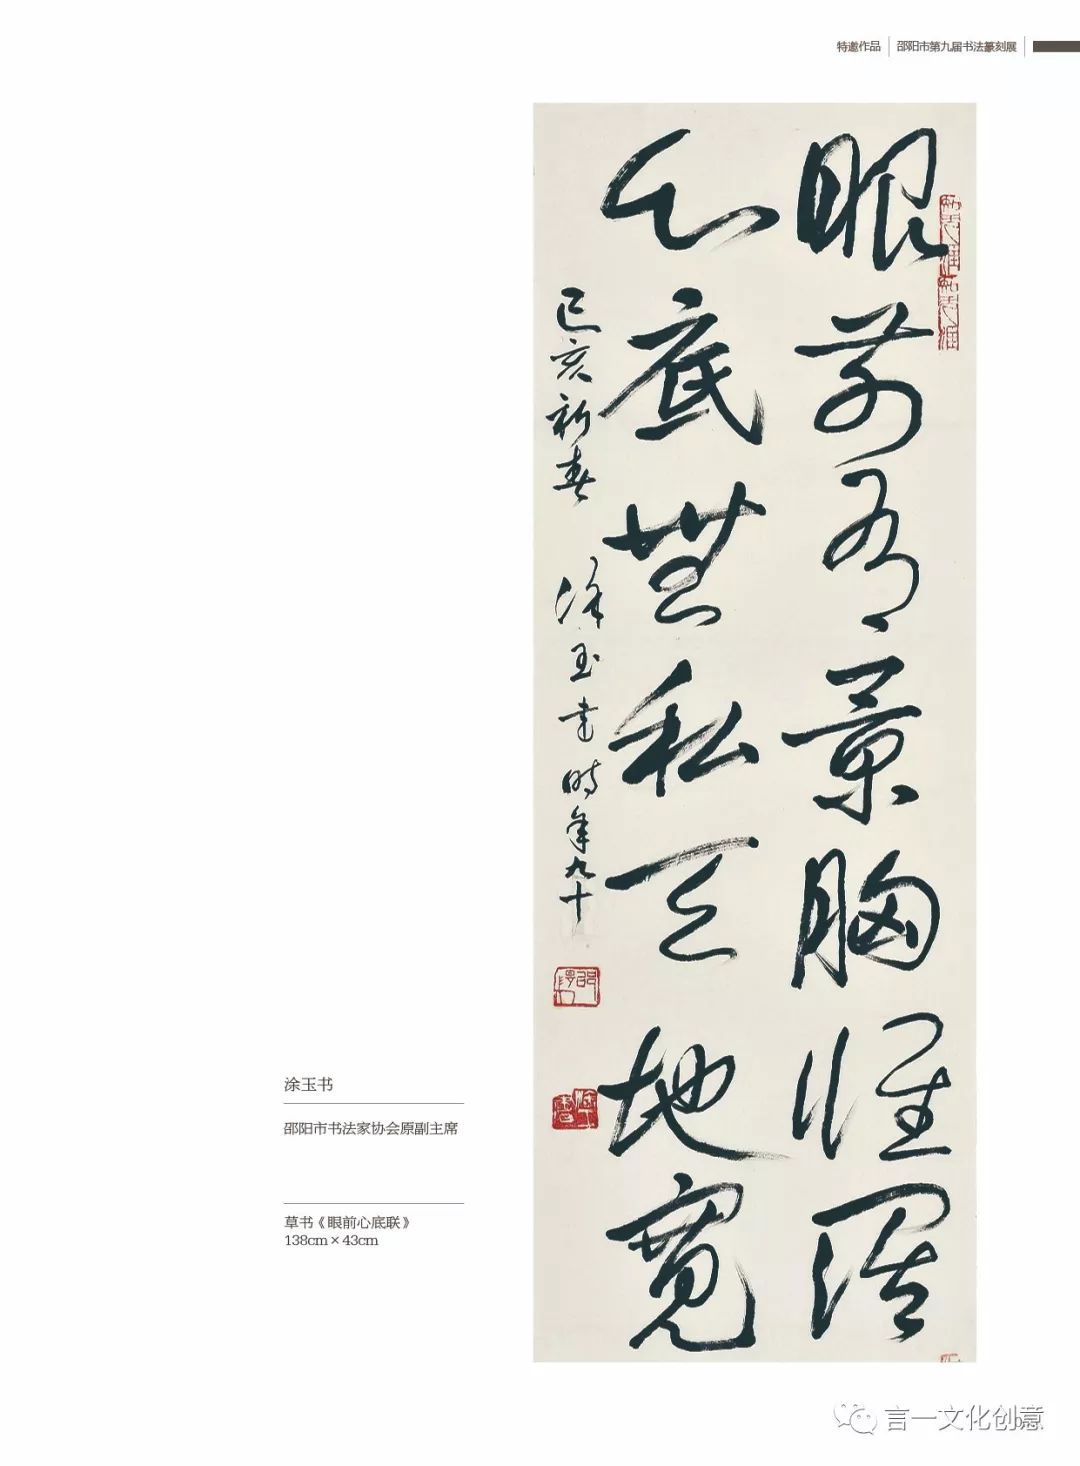 特邀作品 邵阳市第九届书法篆刻展
眼前有景胸懷闊
心底無私天地寬
己亥新春 涂玉書時年九十
涂玉书
邵阳市书法家协会原副主席
草书《眼前心底联》
138cm×43cm
言一文化创意